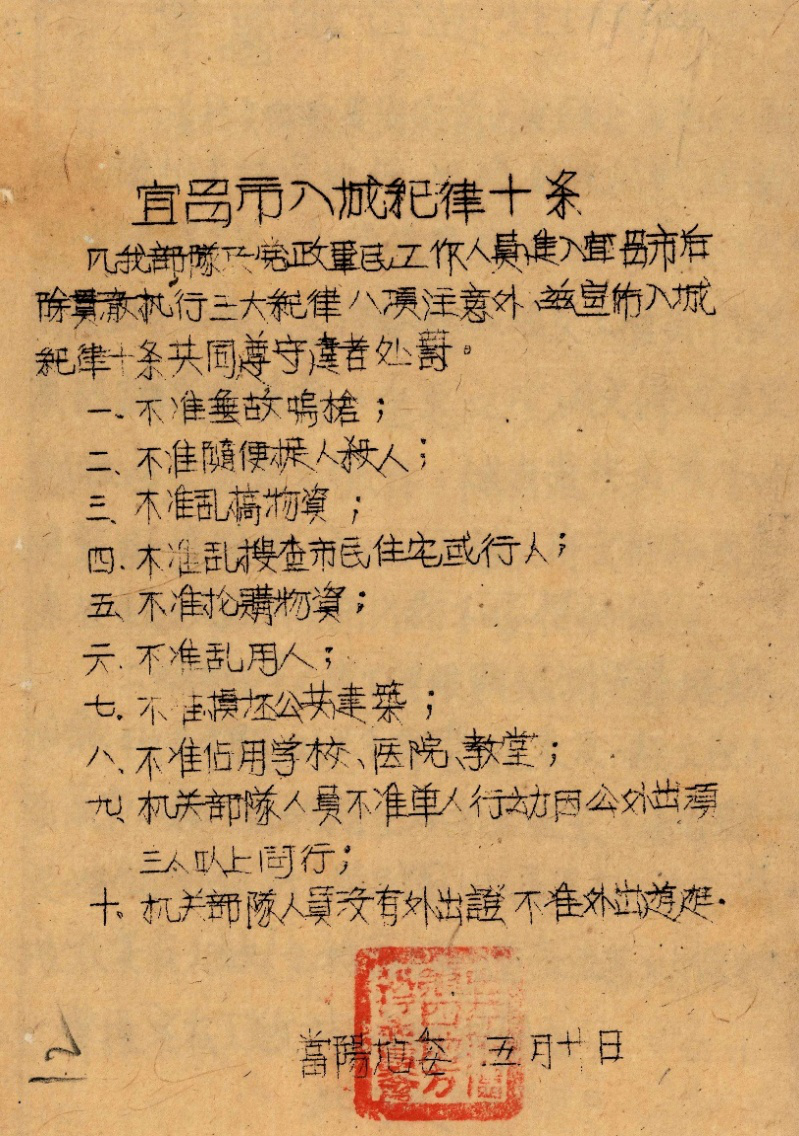 宜昌市入城紀律十条
凡我部隊及党政軍民工作人員進入宜昌市后
除貫澈执行三大紀律八項注意外兹宣佈入城
紀律十条共同尊守違者处罸。
一、不准無故鳴槍；
二、不准隨便捉人殺人；
三、不准乱搞物資；
四、不准乱搜查市民住宅或行人；
五、不准抢購物資；
六、不准乱用人；
七、不准損坯公共建築；
八、不准佔用学校、医院、教堂；
九、机关部隊人員不准单人行动因公外出須
三人以上同行；
十、机关部隊人員没有外出證不准外出遊逛.
當陽地委 五月廿日
12